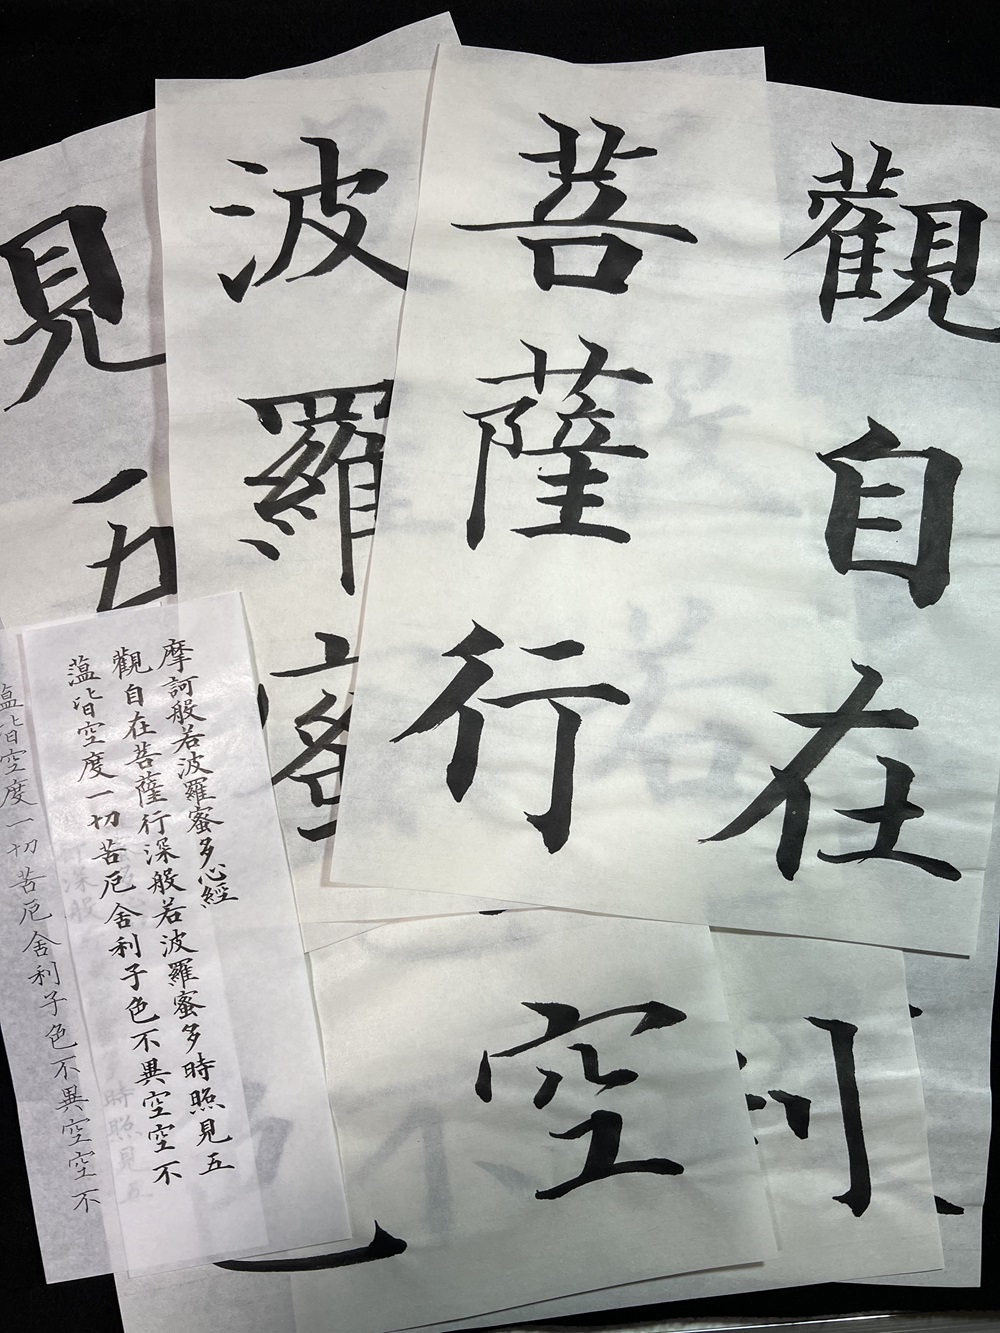 觀自在
菩薩行
波羅蜜
見五
空
利
摩訶般若波羅蜜多心經
觀自在菩薩行深般若波羅蜜多時照見五
蘊皆空度一切苦厄舍利子色不異空空不
蘊皆空度一切苦厄舍利子色不異空空不